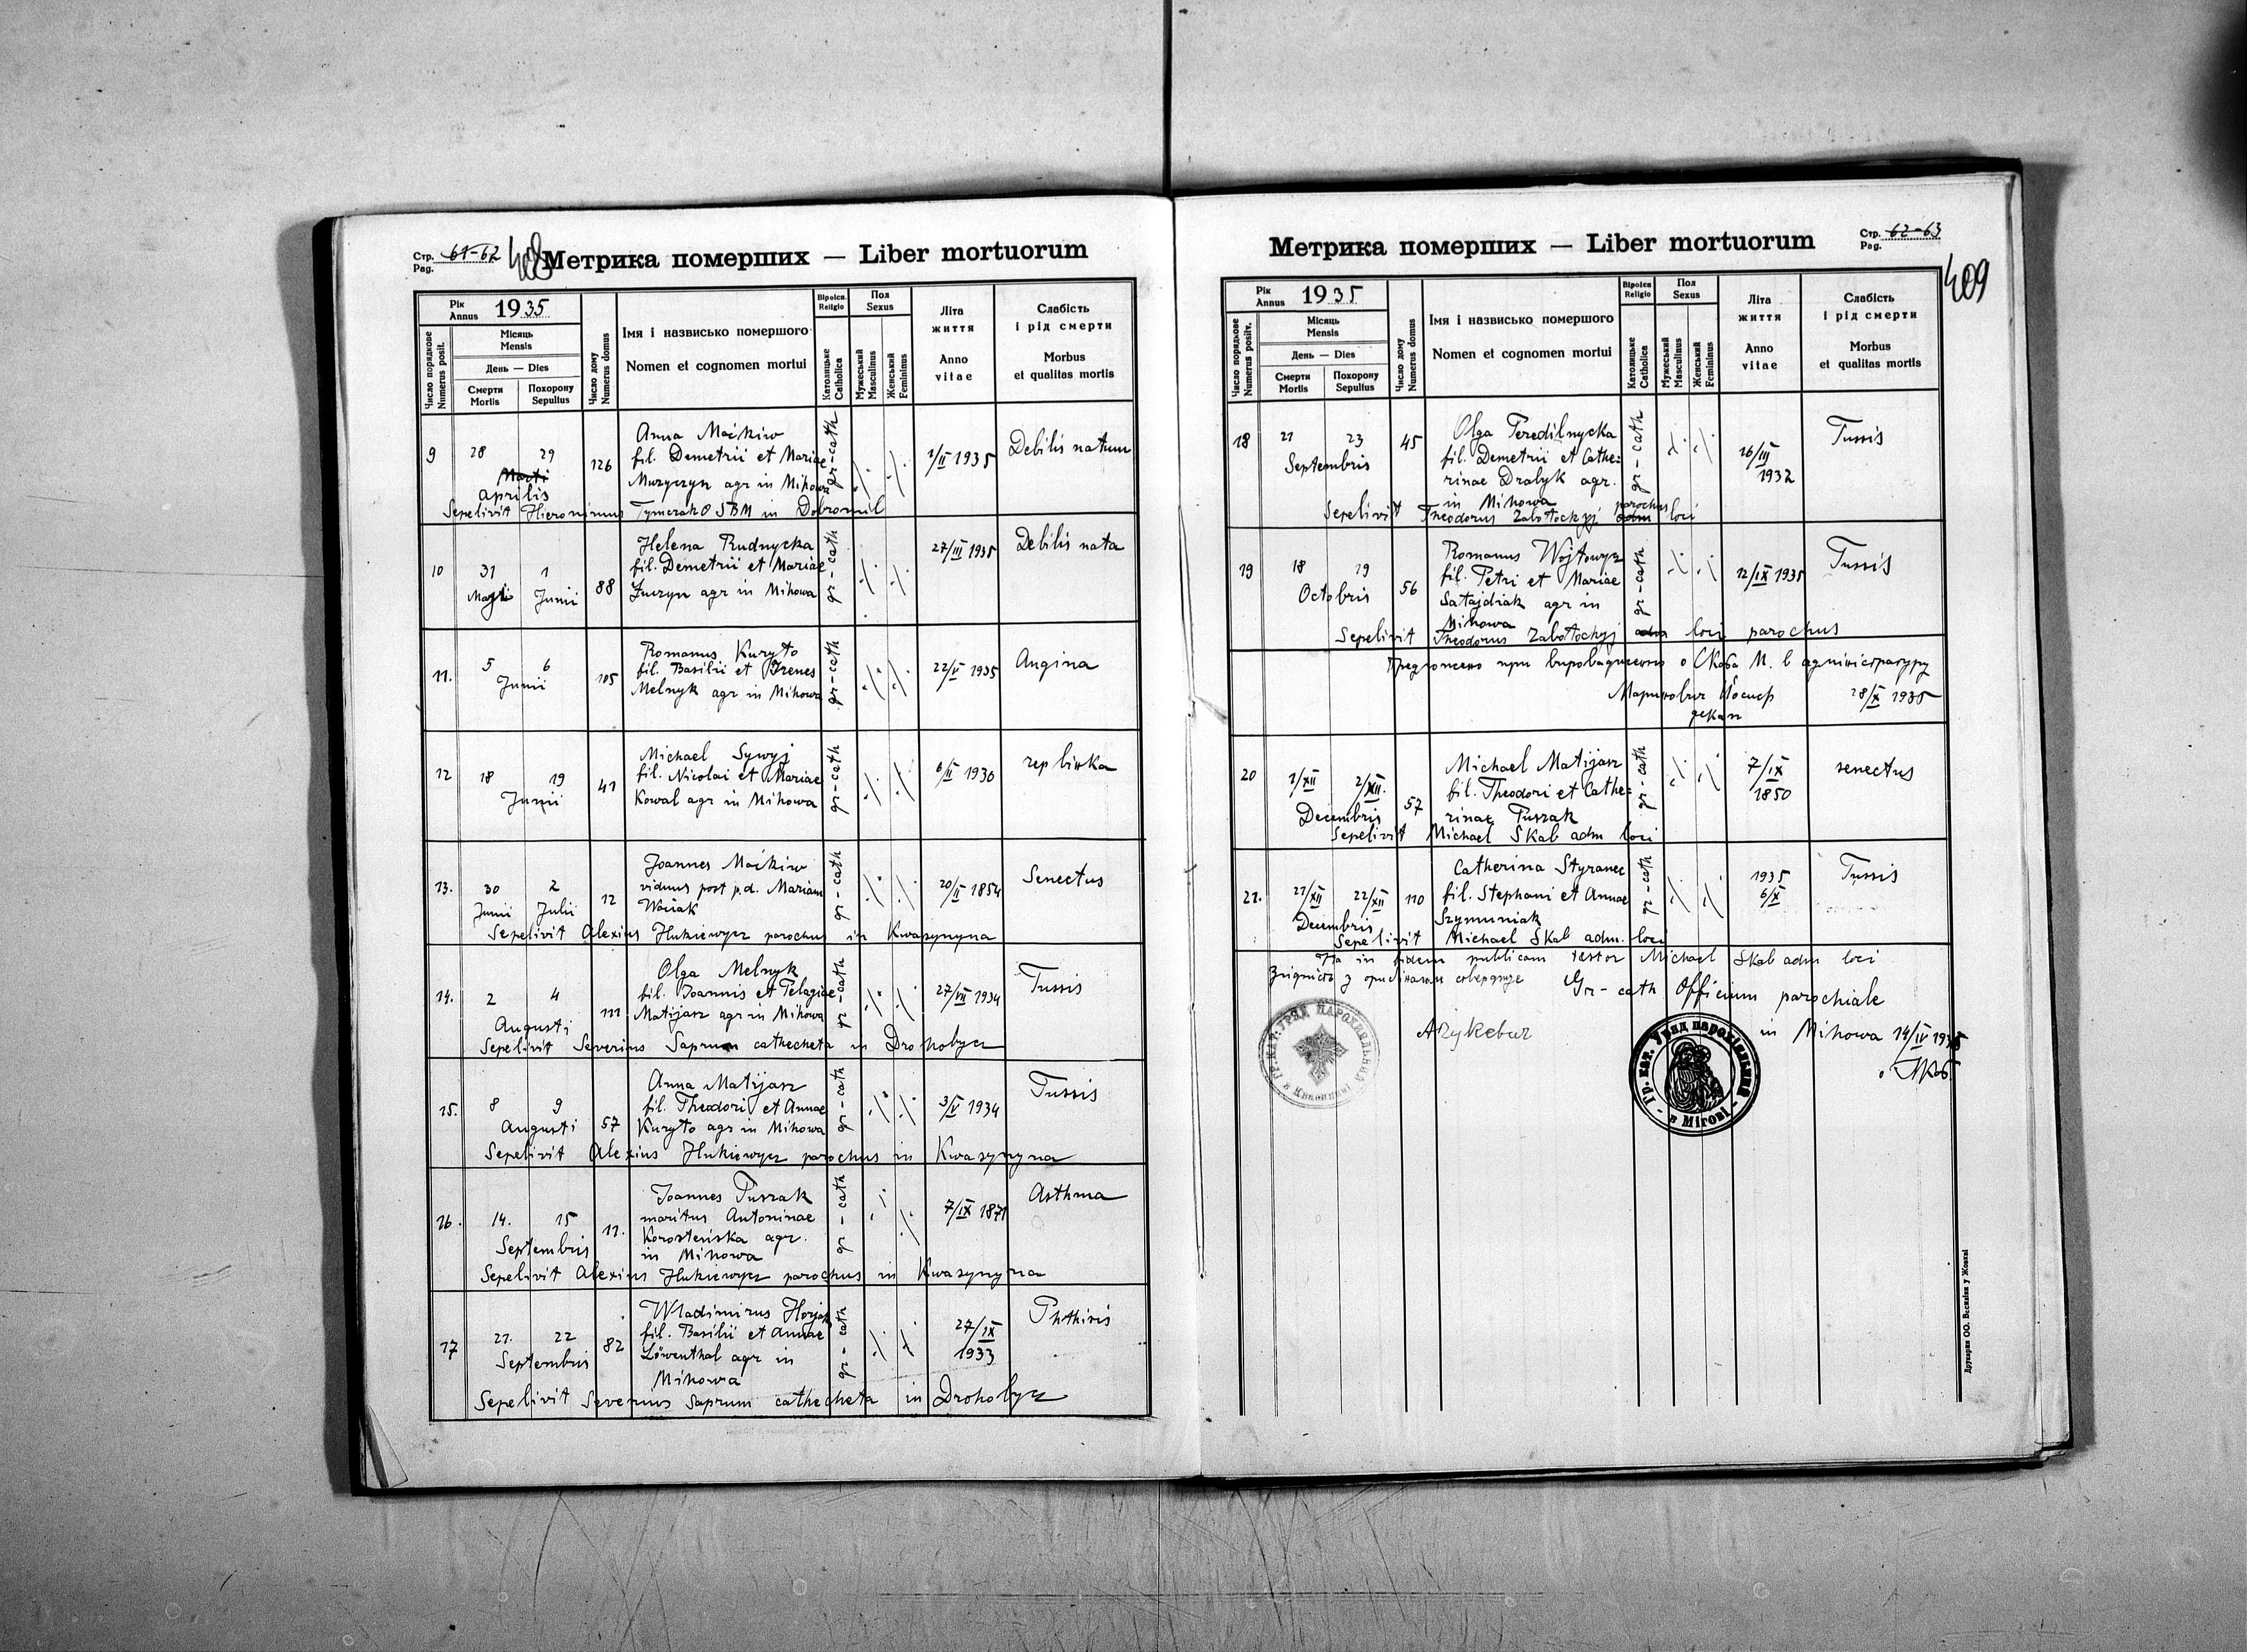 Стр. 61-62
Pag.
408
Метрика померших — Liber mortuorum
Рік
Annus 1935
Число порядкове
Numerus posit.
Місяць
Mensis
День — Dies
Смерти
Mortis
Похорону
Sepultus
Число дому
Numerus domus
Імя і назвисько помершого
Nomen et cognomen mortui
Віроісп.
Religio
Католицьке
Catholica
Пол
Sexus
Мужеський
Masculinus
Женський
Femininus
Літа
життя
Anno
vitae
Слабість
і рід смерти
Morbus
et qualitas mortis
9 28 29 126 Anna Maćkiw gr-cath 1/II 1935 Debilis natum
fil. Demetrii et Mariae
Marti
Muzyczyn agr in Mihowa
Aprilis
Sepelivit Hieronimus Tymczak OSBM in Dobromil
10 31 1 88 Helena Rudnycka gr-cath 27/III 1935 Debilis nata
fil. Demetrii et Mariae
Maji Junii
agr in Mihowa
11. 5 6 105 Romanus Kuryło gr-cath 22/V 1935 Angina
Junii
fil. Basilii et Irenes
Melnyk agr in Mihowa
12 18 19 41 Michael Sywyj gr-cath 6/II 1930
Junii
fil. Nicolai et Mariae
Kowal agr in Mihowa
13. 30 2 12 Joannes Maćkiw gr-cath 20/II 1854 Senectus
Junii Julii
viduus post p.d. Mariam
Woźiak
Sepelivit Alexius Hukiewycz parochus in Kwasynyna
14. 2 4 111 Olga Melnyk gr-cath 27/VII 1934 Tussis
Augusti
fil. Joannis et Pelagiae
Matijasz agr in Mihowa
Sepelivit Severius Saprun cathecheta in Drohobycz
15. 8 9 57 Anna Matijasz gr-cath 3/V 1934 Tussis
Augusti
fil. Theodori et Annae
Kuryło agr in Mihowa
Sepelivit Alexius Hukiewycz parochus in Kwasynyna
16. 14. 15 11. Joannes Puszak gr-cath 7/IX 1871 Asthma
Septembris
maritus Antoninae
Korosteńska agr.
in Mihowa
Sepelivit Alexius Hukiewycz parochus in Kwasynyna
17 21. 22 82 Wladimirus gr-cath 27/IX 1933 Phthisis
Septembris
fil. Basilii et Annae
Löwenthal agr in
Mihowa
Sepelivit Severius Saprun cathecheta in Drohobycz
Метрика померших — Liber mortuorum
Стр. 62-63
Pag.
409
Рік
Annus 1935
Число порядкове
Numerus positv.
Місяць
Mensis
День — Dies
Смерти
Mortis
Похорону
Sepultus
Число дому
Numerus domus
Імя і назвисько помершого
Nomen et cognomen mortui
Віроісп.
Religio
Католицьке
Catholica
Пол
Sexus
Мужеський
Masculinus
Женський
Femininus
Літа
життя
Anno
vitae
Слабість
і рід смерти
Morbus
et qualitas mortis
18 21 23 45 Olga Peredilnycka gr-cath 26/III 1932 Tussis
Septembris
fil. Demetrii et Cathe=
rinae Drabyk agr.
in Mihowa
Sepelivit Theodorus Zabołockyj adm parochus loci
19 18 19 56 Romanus Wojtowycz gr-cath 12/IX 1935 Tussis
Octobris
fil. Petri et Mariae
Satajdiak agr in
Mihowa
Sepelivit Theodorus Zabołockyj adm loci parochus
Предложено при впровадженню о Скаба М. в адміністратуру
Маринович Йосиф 28/X 1935
декан
20 1/XII 2/XII. 57 Michael Matijasz gr-cath 7/IX 1850 senectus
Decembris
fil. Theodori et Cathe=
rinae Puszak
Sepelivit Michael Skab adm loci
21. 21/XII 22/XII 110 Catherina Styranec gr-cath 1935 6/X Tussis
Decembris
fil. Stephani et Annae
Szymuniak
Sepelivit Michael Skab adm. loci
Ita in fidem publicam testor Michael Skab adm loci
Згідність з оригіналом стверджує
Gr-cath Officium parochiale
in Mihowa 14/IV 1936
о МСкаб
Гр. кат. Уряд парохіяльний
в Мігові
Друкарня ОО. Василіян у Жовкві